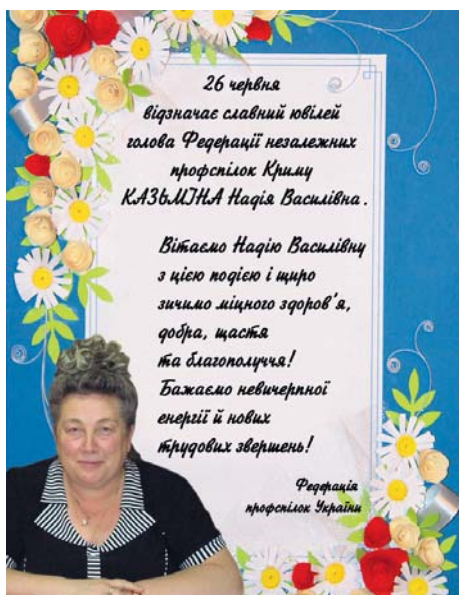 26 червня
відзначає славний ювілей
голова Федерації незалежних
профспілок Криму
КАЗЬМІНА Надія Василівна.
Вітаємо Надію Василівну
з цією подією і щиро
зичимо міцного здоров'я,
добра, щастя
та благополуччя!
Бажаємо невичерпної
енергії й нових
трудових звершень!
Федерація
профспілок України